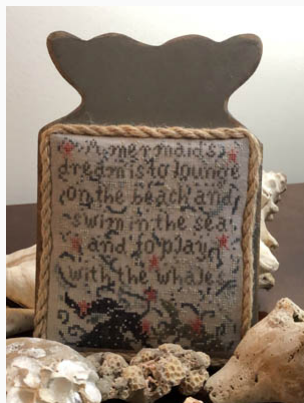 A mermaid's
dream is to lounge
on the beach and
swim in the sea
and to play
with the whales